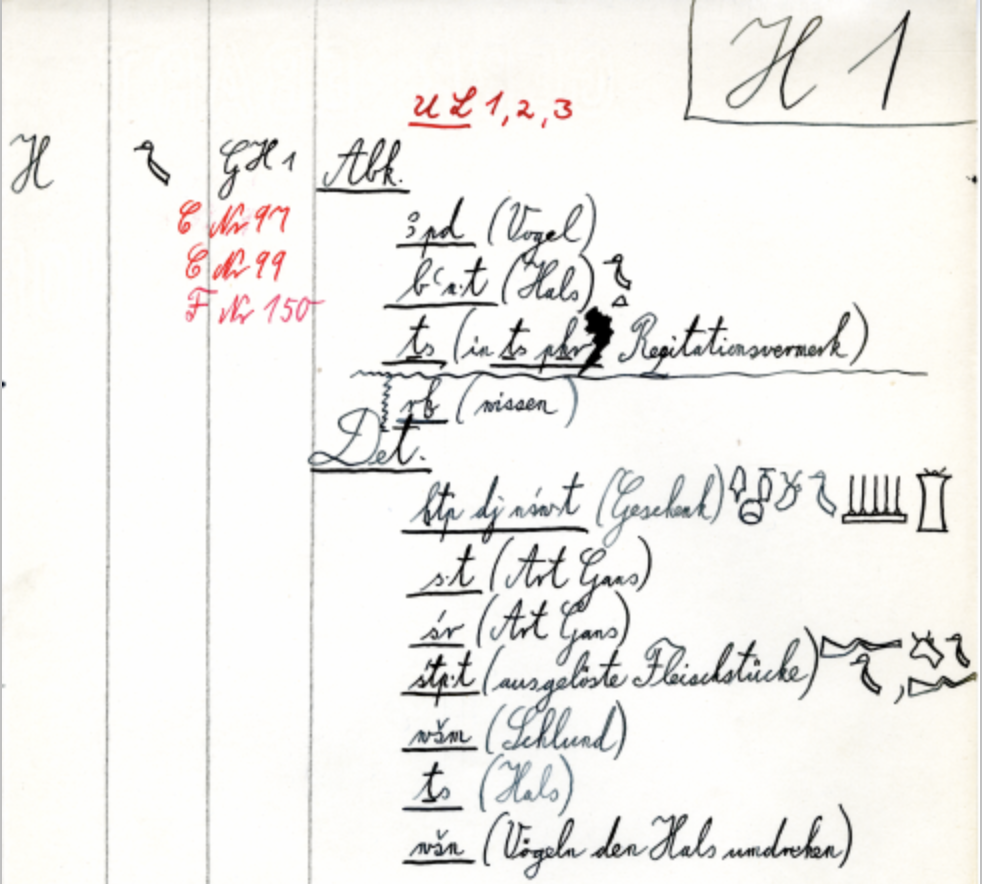 H 1
U L 1, 2, 3
H GH 1 Abk.
C Nr 97 ꜣpd (Vogel)
C Nr 99 bꜥn·t (Hals)
F Nr 150
ṯs (in ṯs pẖr Rezitationsvermerk)
rḫ (wissen)
Det.
ḥtp dj nśwt (Geschenk)
s·t (Art Gans)
śr (Art Gans)
śtp·t (ausgelöste Fleischstücke) ,
wšm (Schlund)
ṯs (Hals)
wšn (Vögeln den Hals umdrehen)